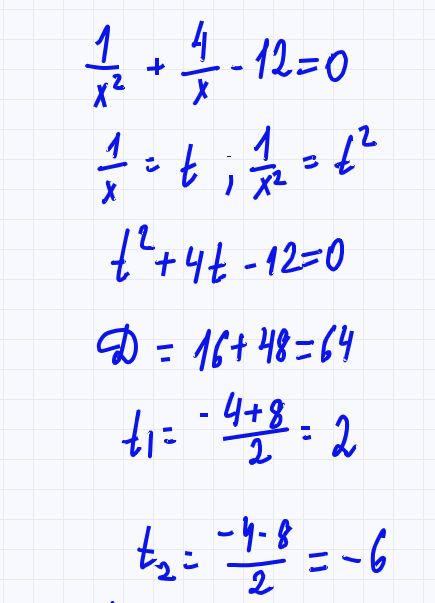 1/x² + 4/x - 12 = 0
1/x = t ; 1/x² = t²
t² + 4t - 12 = 0
D = 16 + 48 = 64
t₁ = (-4+8)/2 = 2
t₂ = (-4-8)/2 = -6